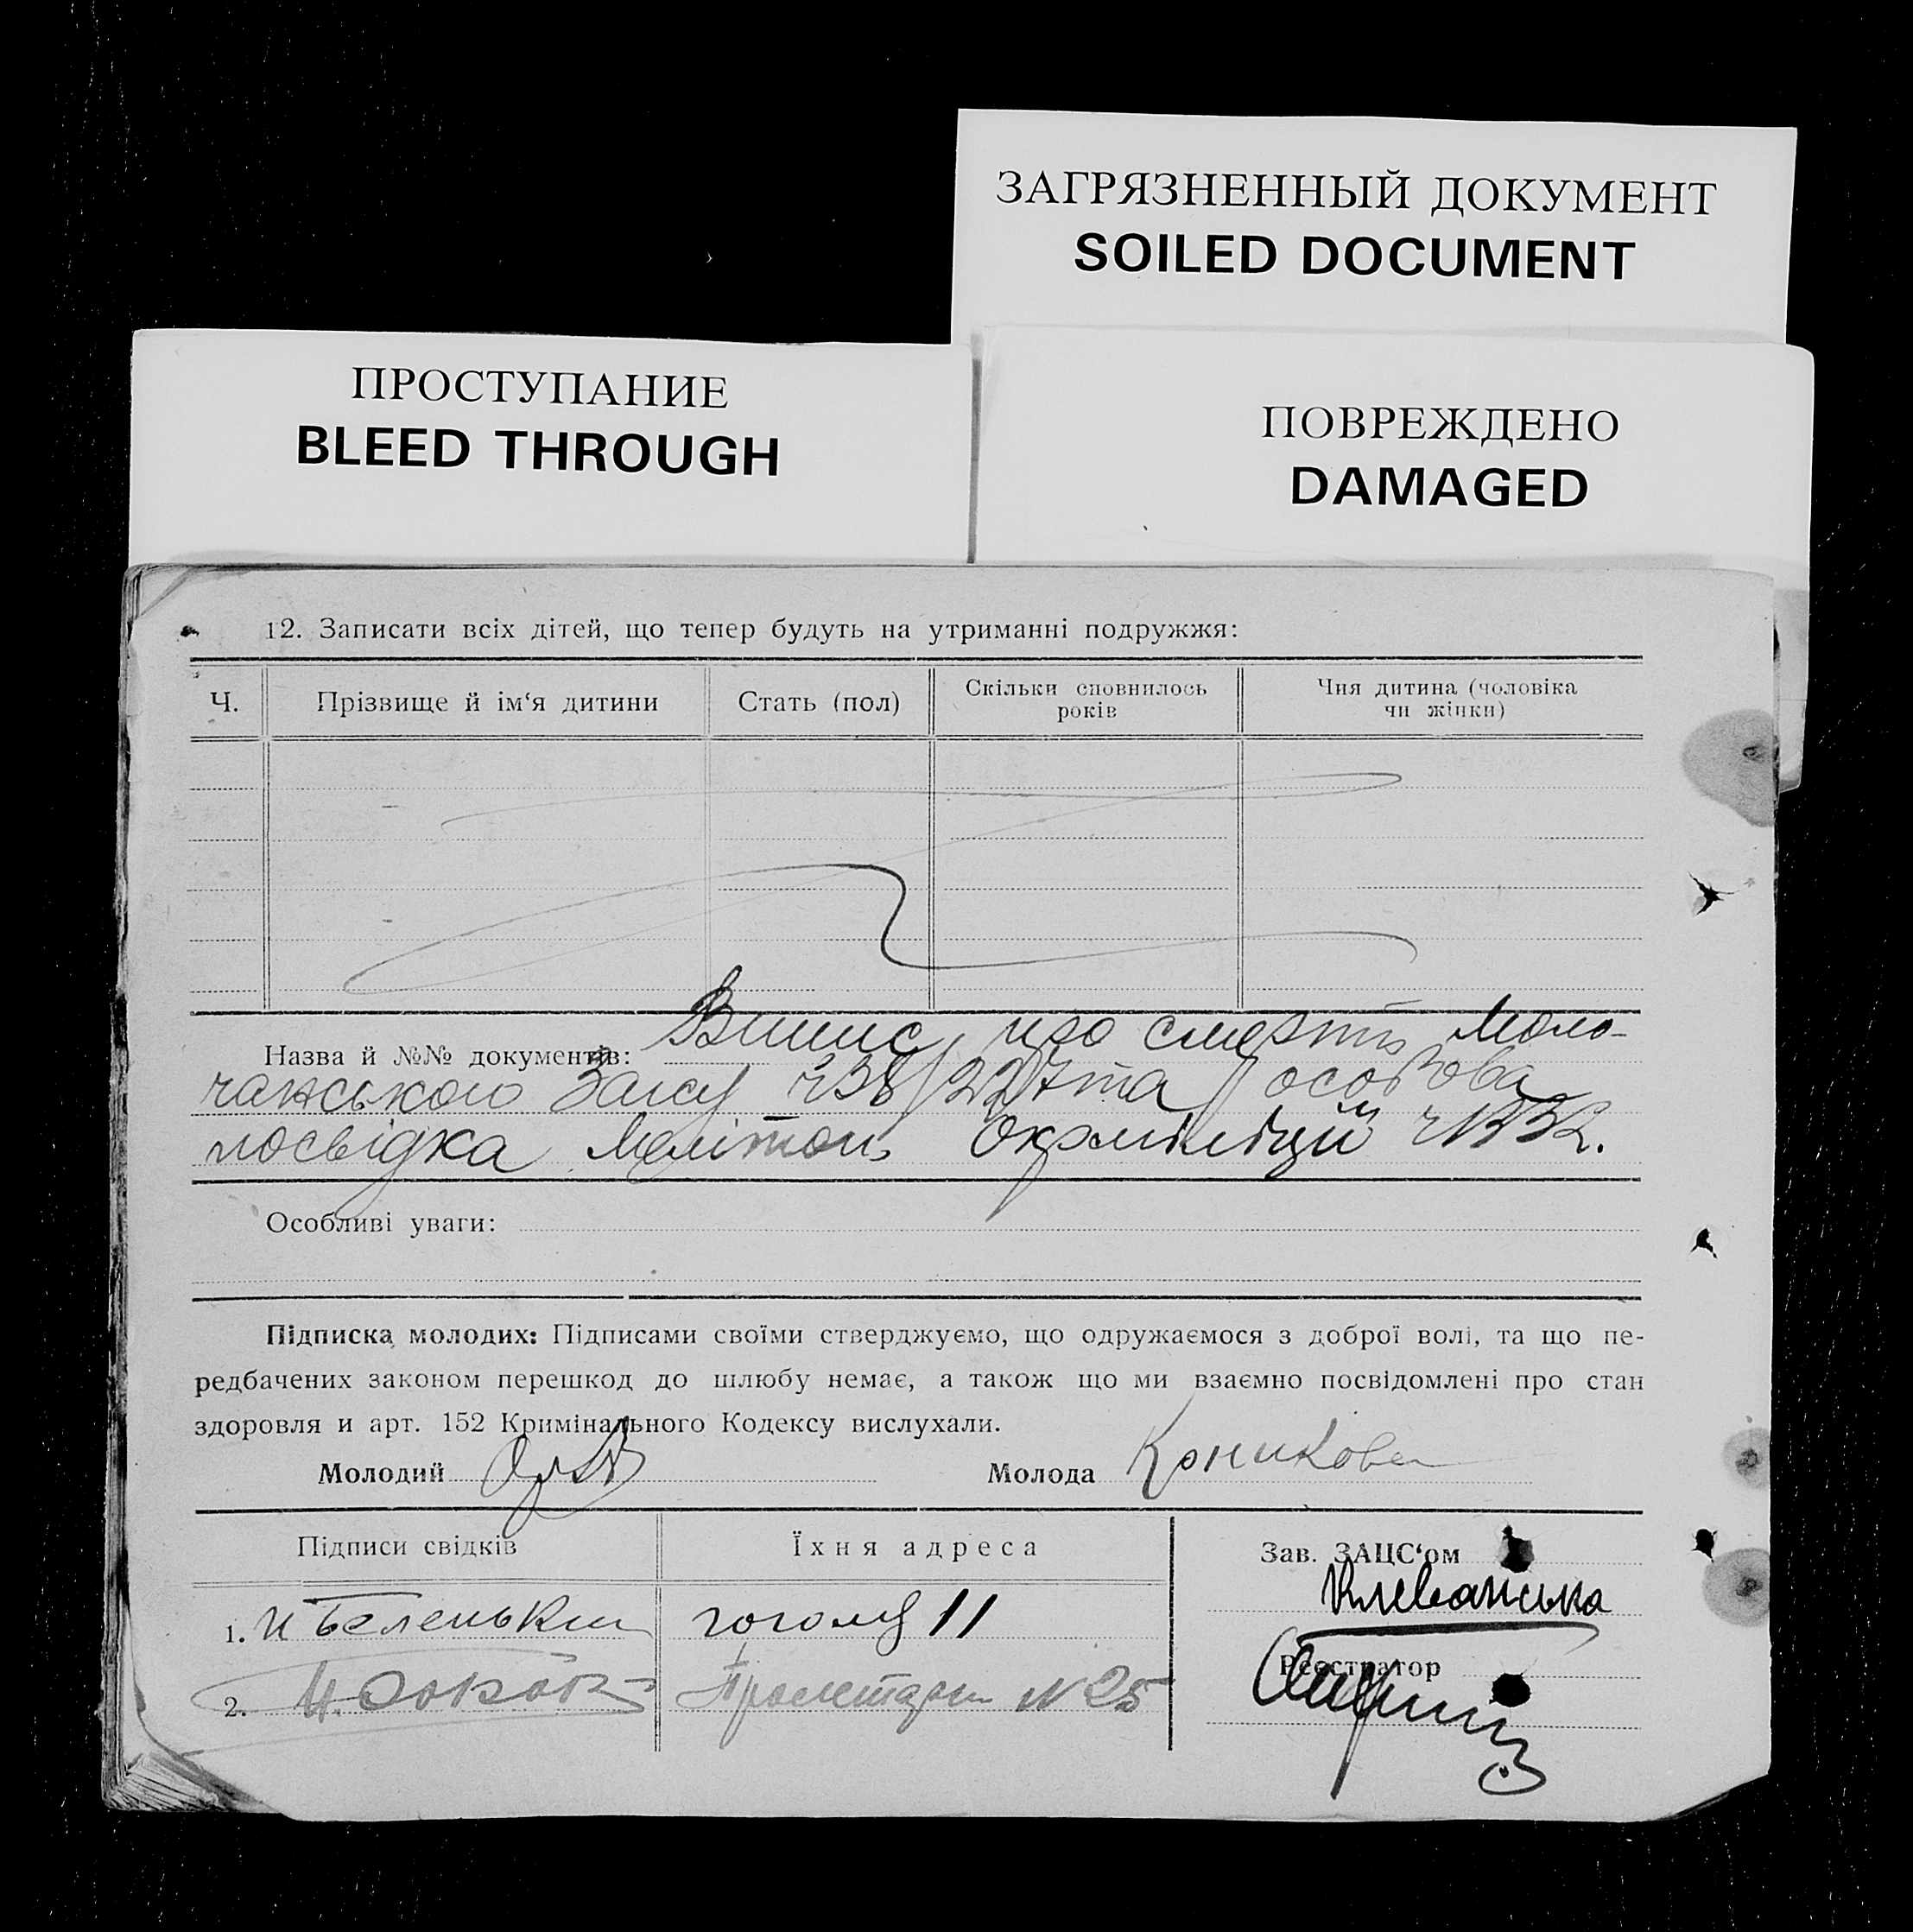 ЗАГРЯЗНЕННЫЙ ДОКУМЕНТ
SOILED DOCUMENT
ПРОСТУПАНИЕ
BLEED THROUGH
ПОВРЕЖДЕНО
DAMAGED
12. Записати всіх дітей, що тепер будуть на утриманні подружжя:
Ч.
Прізвище й ім‘я дитини
Стать (пол)
Скільки сповнилось
років
Чия дитина (чоловіка
чи жінки)
Назва й №№ документів: Випис про смерть Моло-
чанського Загсу та особова
посвідка Меліտոп. Окрміліції
Особливі уваги:
Підписка молодих: Підписами своїми стверджуємо, що одружаємося з доброї волі, та що пе-
редбачених законом перешкод до шлюбу немає, а також що ми взаємно посвідомлені про стан
здоровля и арт. 152 Кримінального Кодексу вислухали.
Молодий
Молода Коникова
Підписи свідків
Їхня адреса
Зав. ЗАЦС‘ом
Клеванська
1. И Беленький
гоголя 11
Реєстратор
2.
Пролетарск N 25